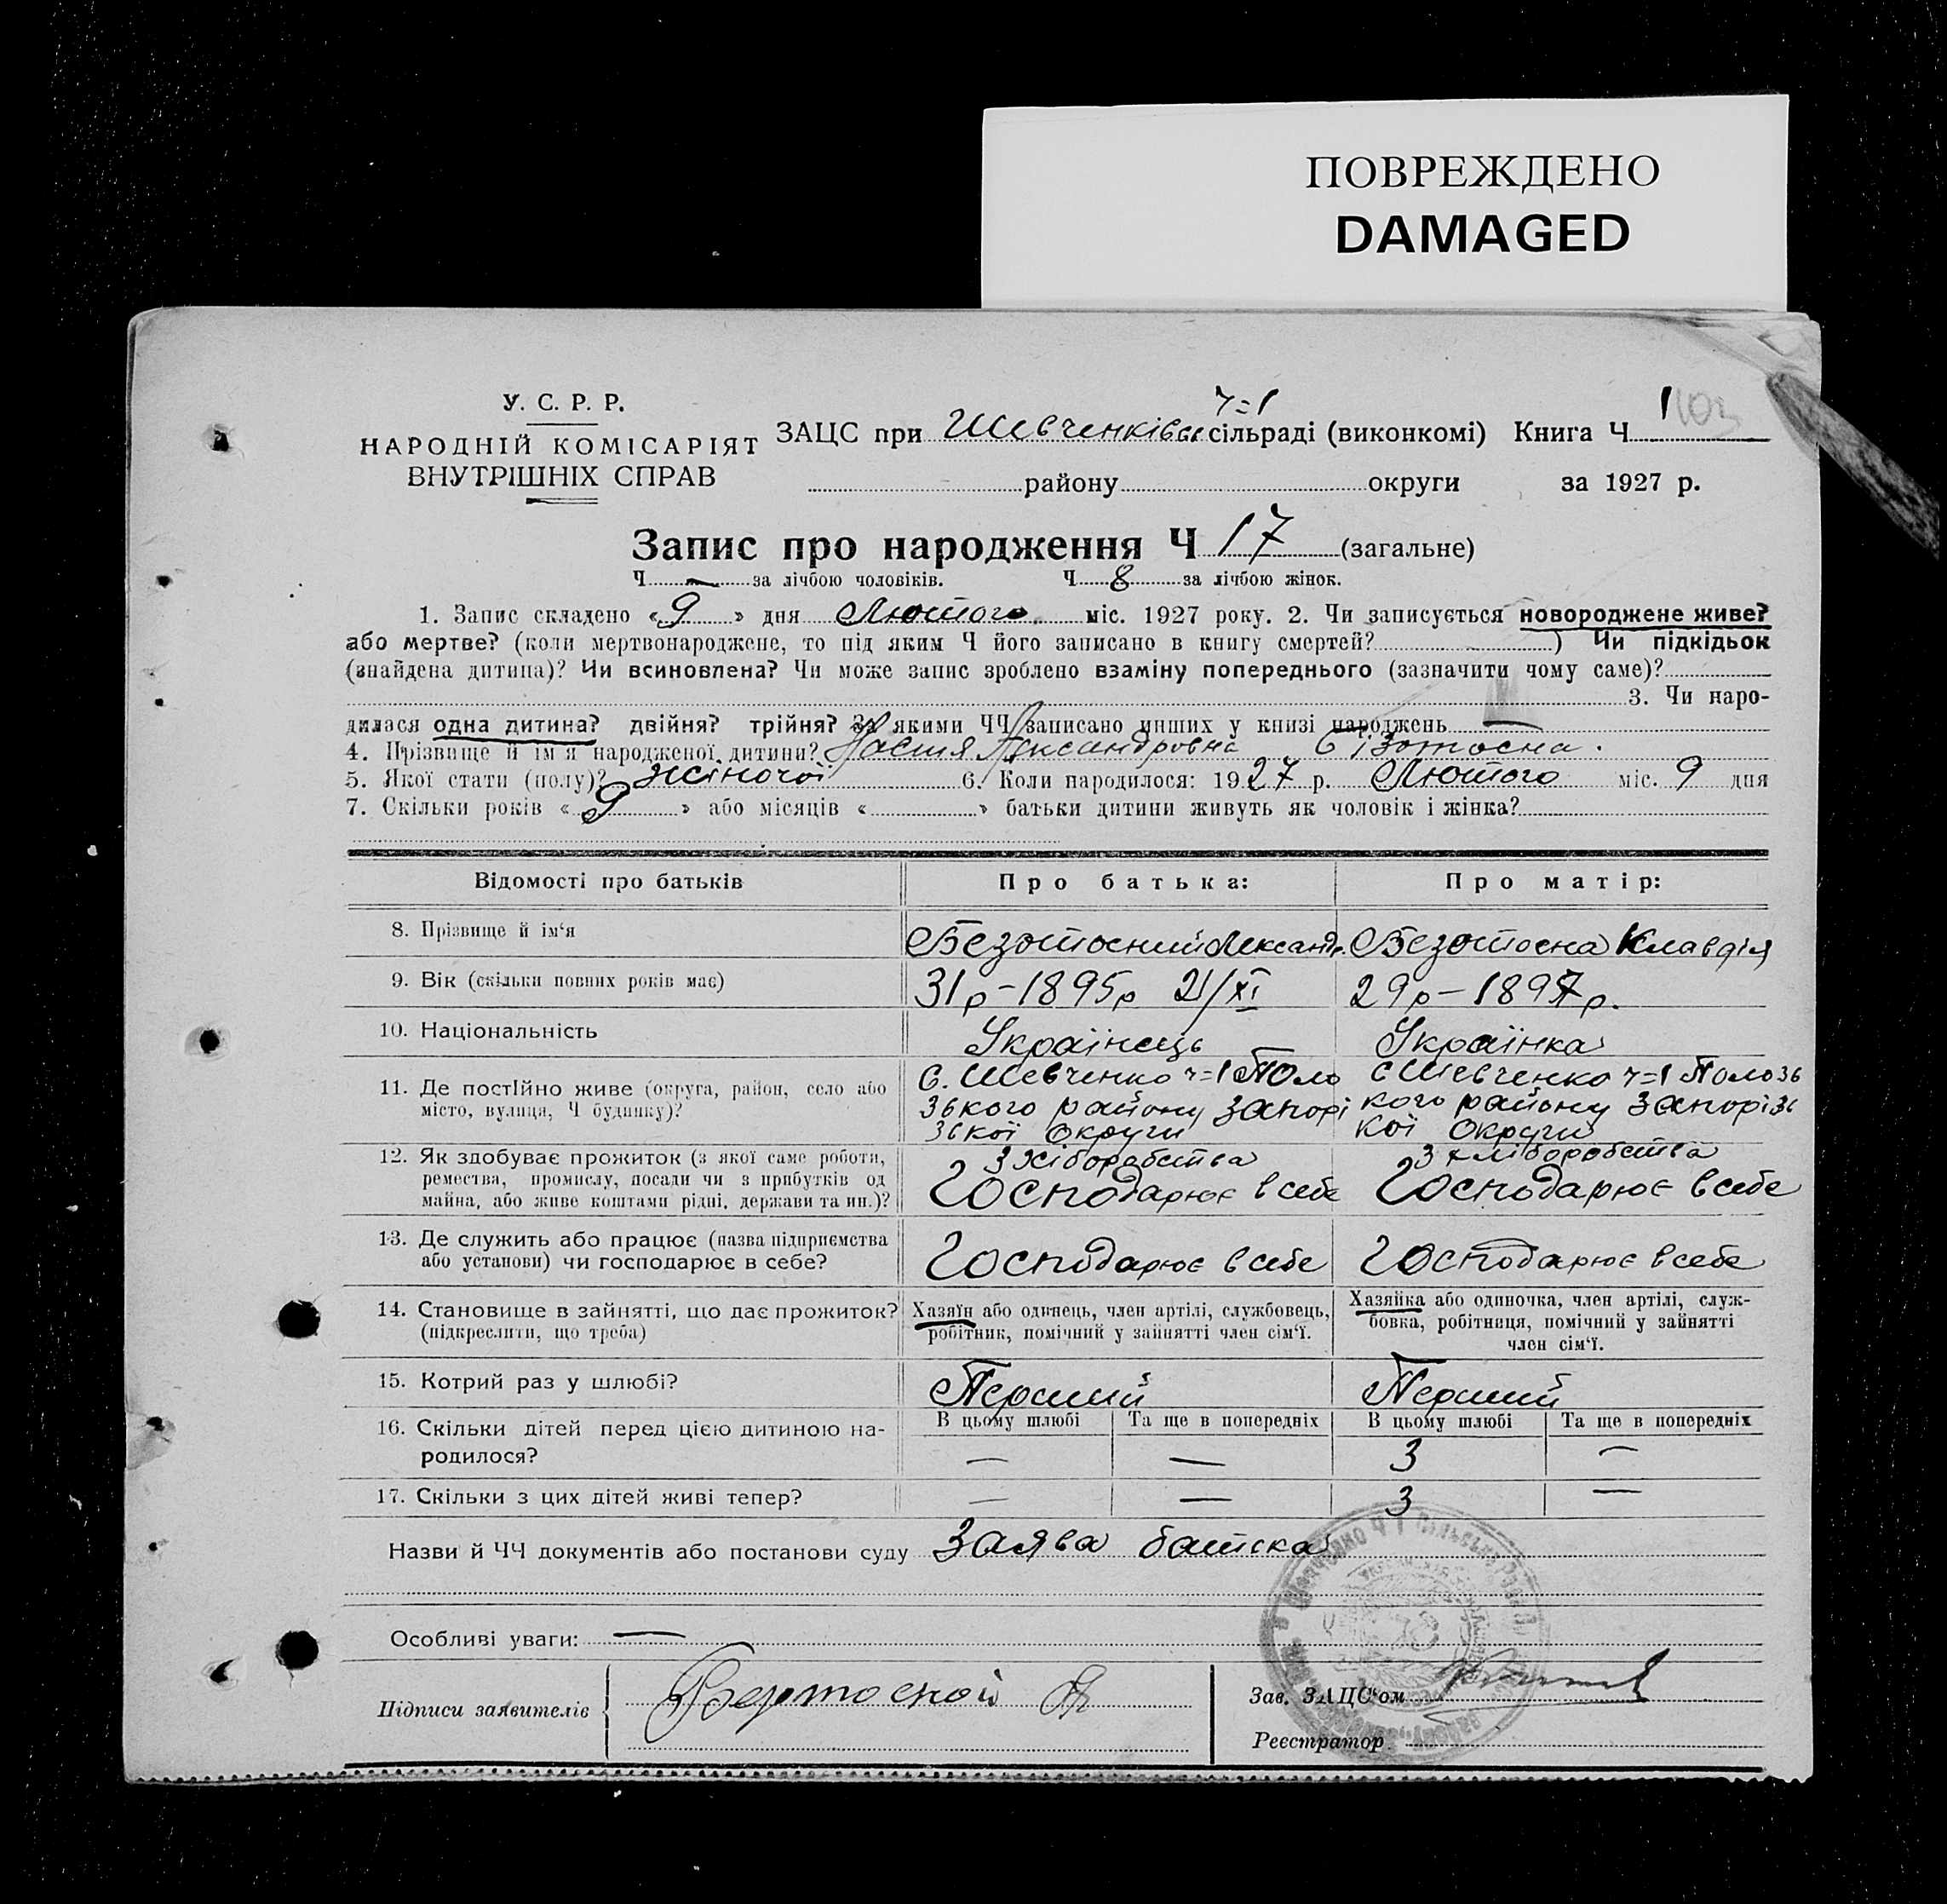 ПОВРЕЖДЕНО
DAMAGED
У. С. Р. Р.
НАРОДНІЙ КОМІСАРІЯТ
ВНУТРІШНІХ СПРАВ
ч=1
ЗАЦС при Шевченківск сільраді (виконкомі) Книга Ч 1 103
району округи за 1927 р.
Запис про народження Ч 17 (загальне)
Ч — за лічбою чоловіків. Ч 8 за лічбою жінок.
1. Запис складено «9» дня Лютого міс. 1927 року. 2. Чи записується новороджене живе?
або мертве? (коли мертвонароджене, то під яким Ч його записано в книгу смертей? ) Чи підкідьок
(знайдена дитина)? Чи всиновлена? Чи може запис зроблено взаміну попереднього (зазначити чому саме)?
3. Чи наро-
дилася одна дитина? двійня? трійня? За якими ЧЧ записано инших у книзі народжень —
4. Прізвище й ім'я народженої дитини? Александровна
5. Якої стати (полу)? жіночої 6. Коли народилося: 1927 р. Лютого міс. 9 дня
7. Скільки років «9» або місяців « » батьки дитини живуть як чоловік і жінка?
Відомості про батьків Про батька: Про матір:
8. Прізвище й ім'я Безотосний Лександр. Безотосна Клавдія
9. Вік (скільки повних років має) 31р-1895р 21/XI 29р-1897р.
10. Національність Українець Українка
11. Де постійно живе (округа, район, село або
місто, вулиця, Ч будинку)?
С. Шевченко ч=1 Поло
зького району Запорі
зької Округи
с Шевченко ч=1 Пологзь
кого району Запорізь
кої Округи
12. Як здобуває прожиток (з якої саме роботи,
ремества, промислу, посади чи з прибутків од
майна, або живе коштами рідні, держави та ин.)?
З хіборобства
Господарює в себе
З хліборобства
Господарює в себе
13. Де служить або працює (назва підприємства
або установи) чи господарює в себе?
Господарює в себе Господарює в себе
14. Становище в зайнятті, що дає прожиток?
(підкреслити, що треба)
Хазяїн або одинець, член артілі, службовець,
робітник, помічний у зайнятті член сім'ї.
Хазяйка або одиночка, член артілі, служ-
бовка, робітниця, помічний у зайнятті
член сім'ї.
15. Котрий раз у шлюбі? Перший Перший
В цьому шлюбі Та ще в попередніх В цьому шлюбі Та ще в попередніх
16. Скільки дітей перед цією дитиною на-
родилося?
— — 3 —
17. Скільки з цих дітей живі тепер? — — 3 —
Назви й ЧЧ документів або постанови суду Заява батска
Особливі уваги: —
Підписи заявителів
Зав. ЗАЦС'ом
Реєстратор